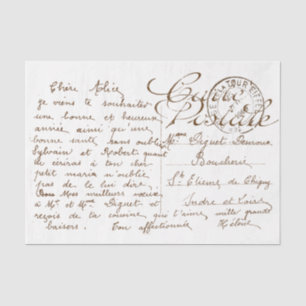 Carte
Postale
LA TOUR EIFFEL
Chère Alice
je viens te souhaiter
une bonne et heureuse
année ainsi qu'une
bonne santé sans oublié
Sylvain et Robert quand
tu écriras à ton cher
petit mari n'oublie
pas de le lui dire
Mes meilleurs vœux
à Mr et Mme Diguet et
reçois de ta cousine qui t'aime mille grands
baisers. Ton affectionnée Hélène
Mme Diguet
Boucherie
St Etienne de Chigny
Indre et Loire